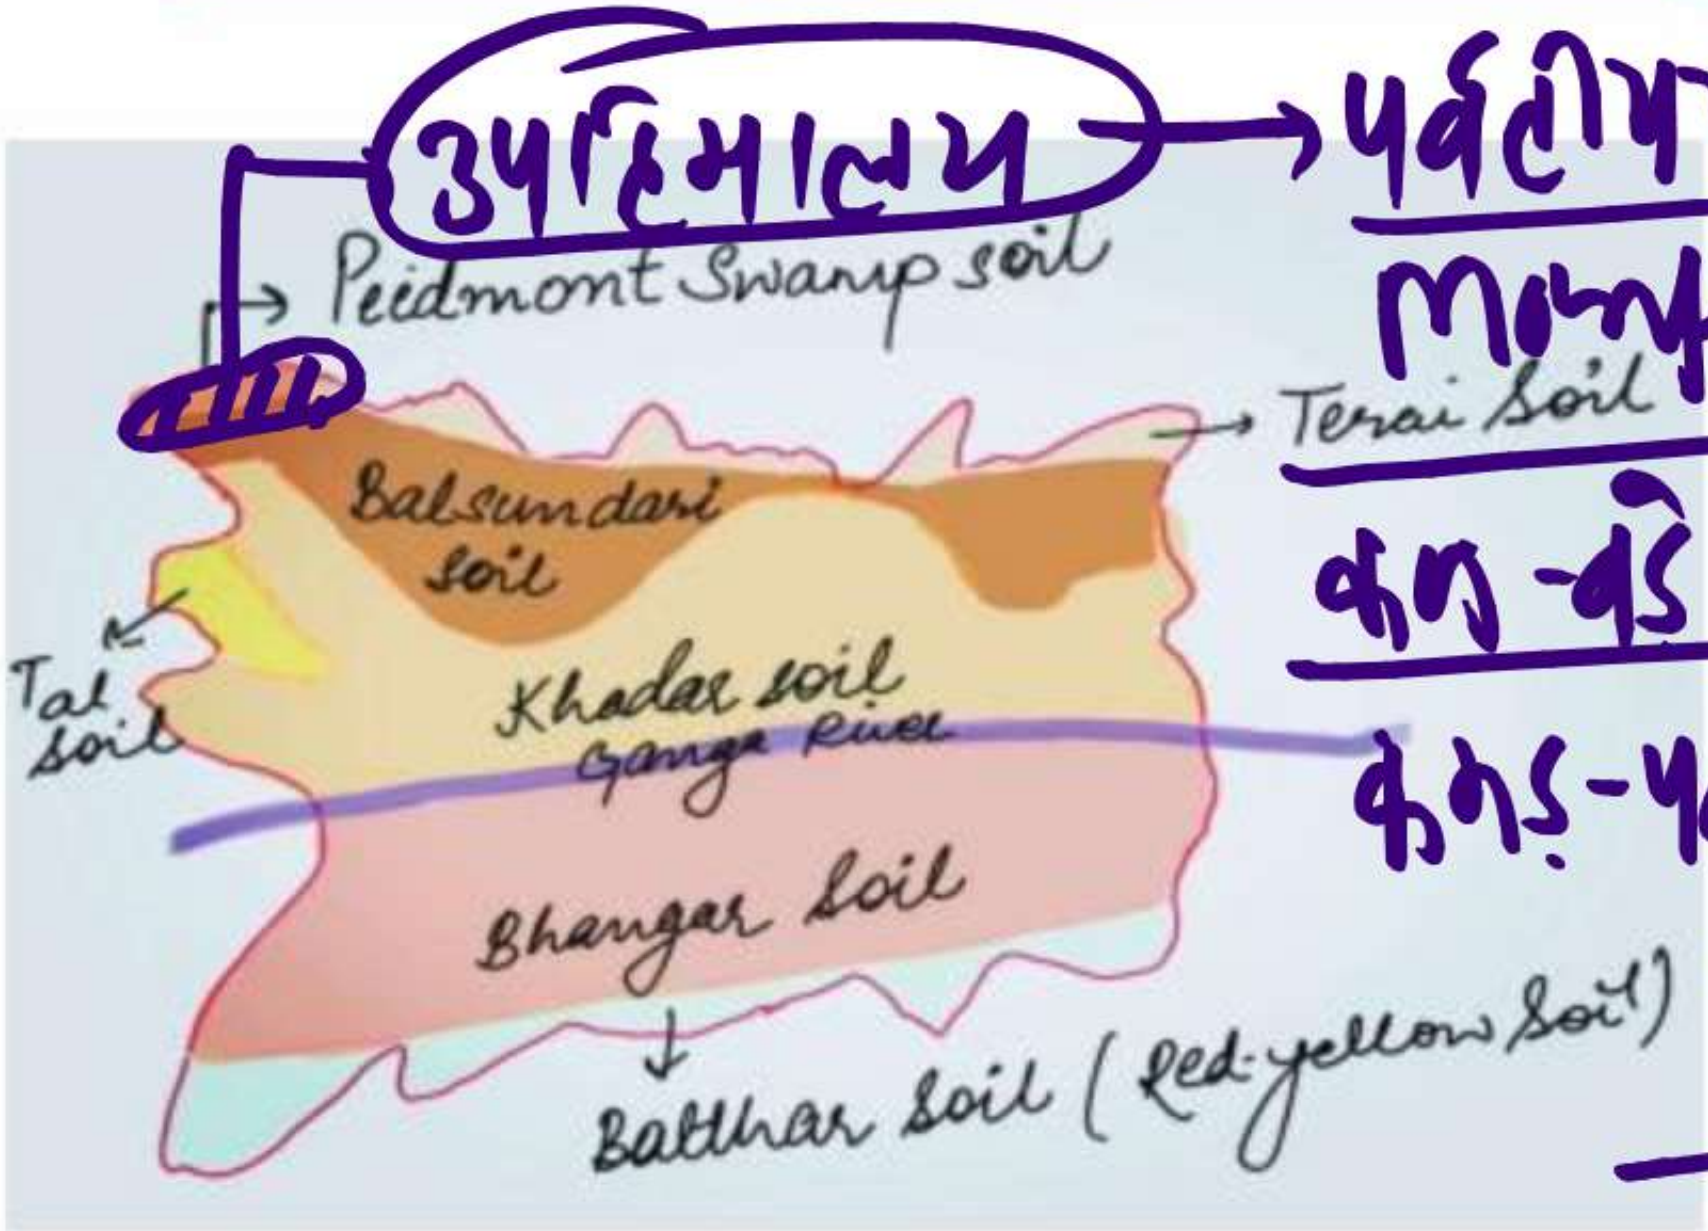 उपहिमालय → पर्वतीय
Peidmont Swamp soil
Terai Soil
Balsundari
soil
कण - बड़े
Tal
soil
Khadar soil
Ganga River
Bhangar Soil
Balthar Soil (Red-yellow Soil)